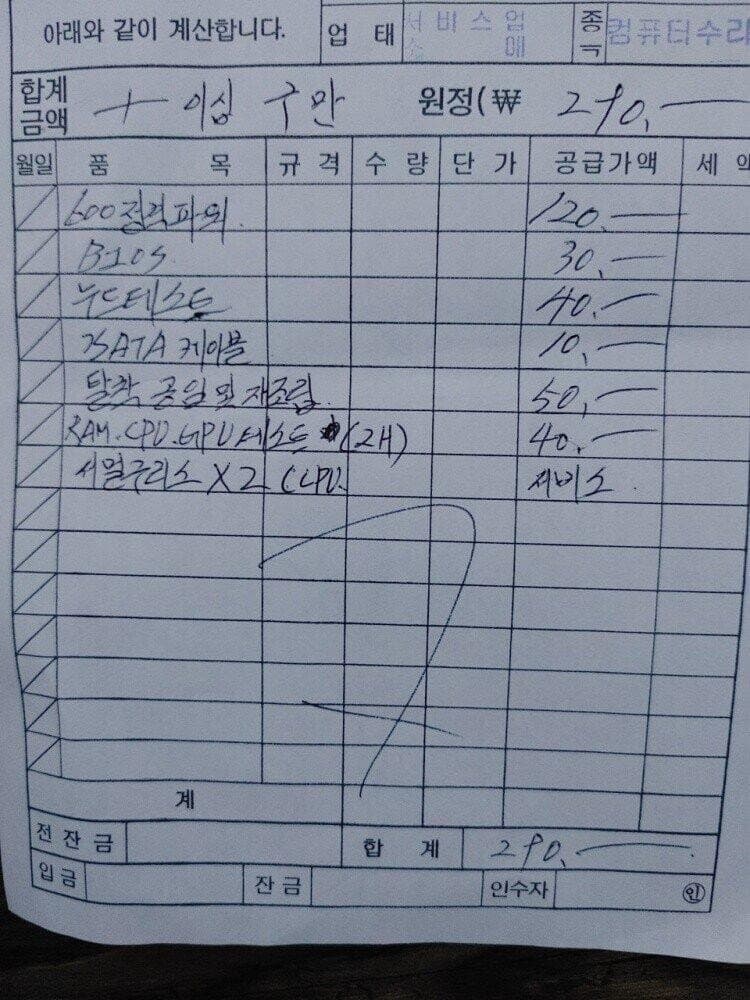 아래와 같이 계산합니다.
업 태 서비스업 종
소 매 컴퓨터수리
합계
금액 이십구만 원정(₩ 290,—
월일 품 목 규격 수량 단가 공급가액 세
600정격파워. 120.—
BIOS 30.—
누드테스트 40.—
SATA 케이블 10.—
탈착 공임 및 재조립 50.—
RAM.CPU.GPU 테스트 (2H) 40.—
서멀구리스 X2 (CPU. 서비스.
계
전잔금 합 계 290.—
입금 잔금 인수자 인